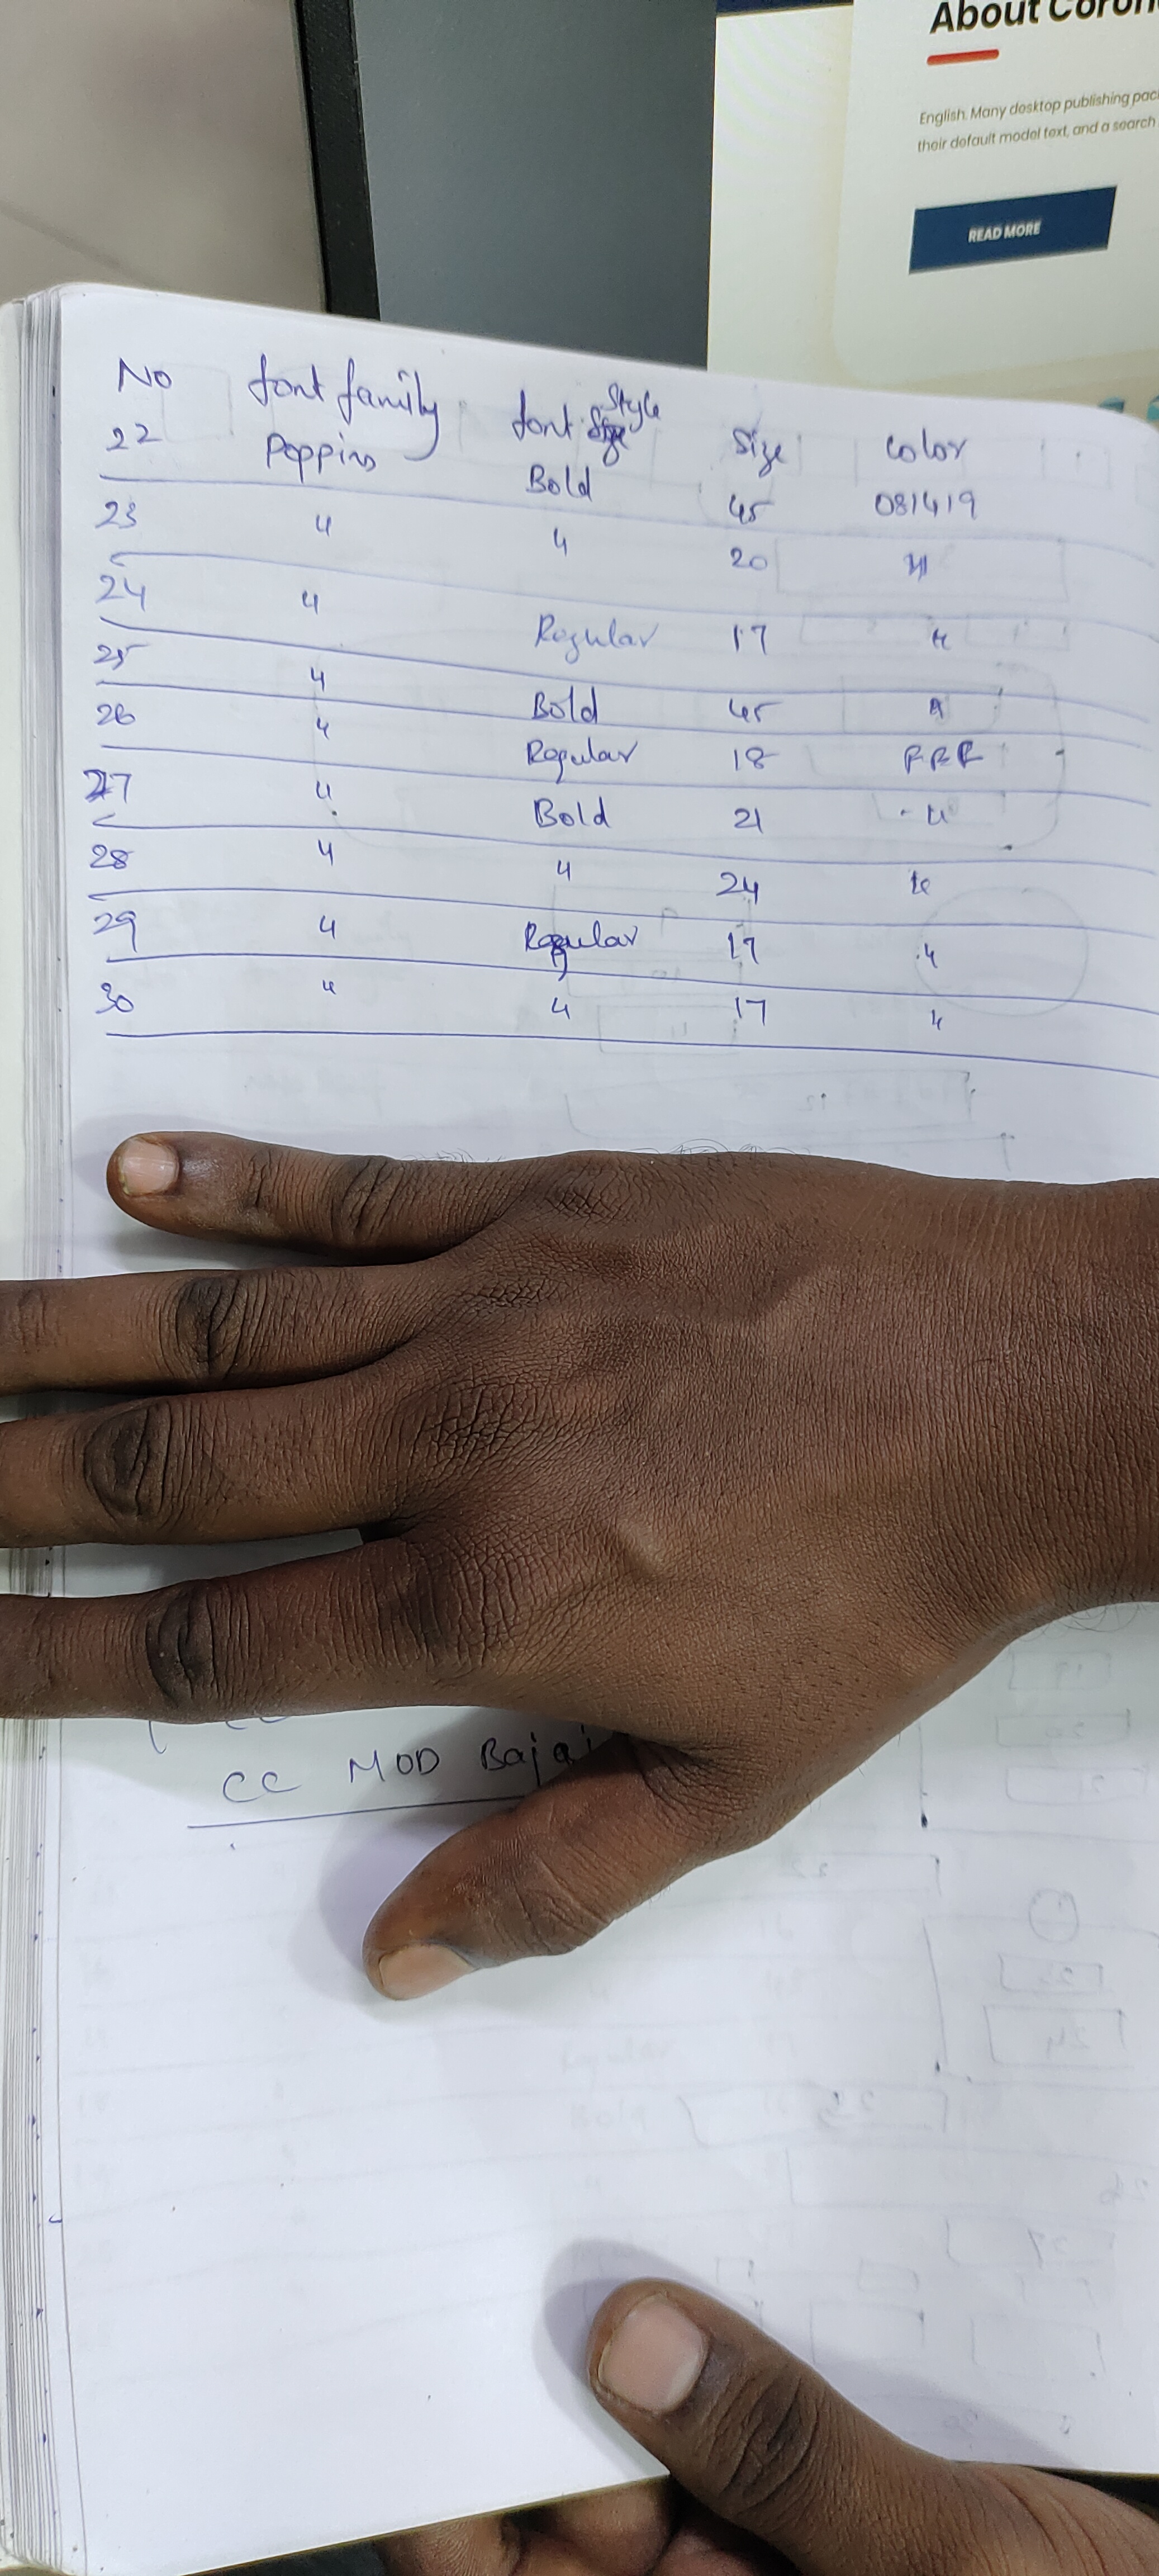 About Coron
English. Many desktop publishing pac
their default model text, and a search
READ MORE
No font family font style size color
22 Poppins Bold 45 081419
23 " " 20 "
24 " Regular 17 "
25 " Bold 45 "
26 " Regular 18 FFF
27 " Bold 21 "
28 " " 24 "
29 " Regular 17 "
30 " " 17 "
CC MOD Bajaj